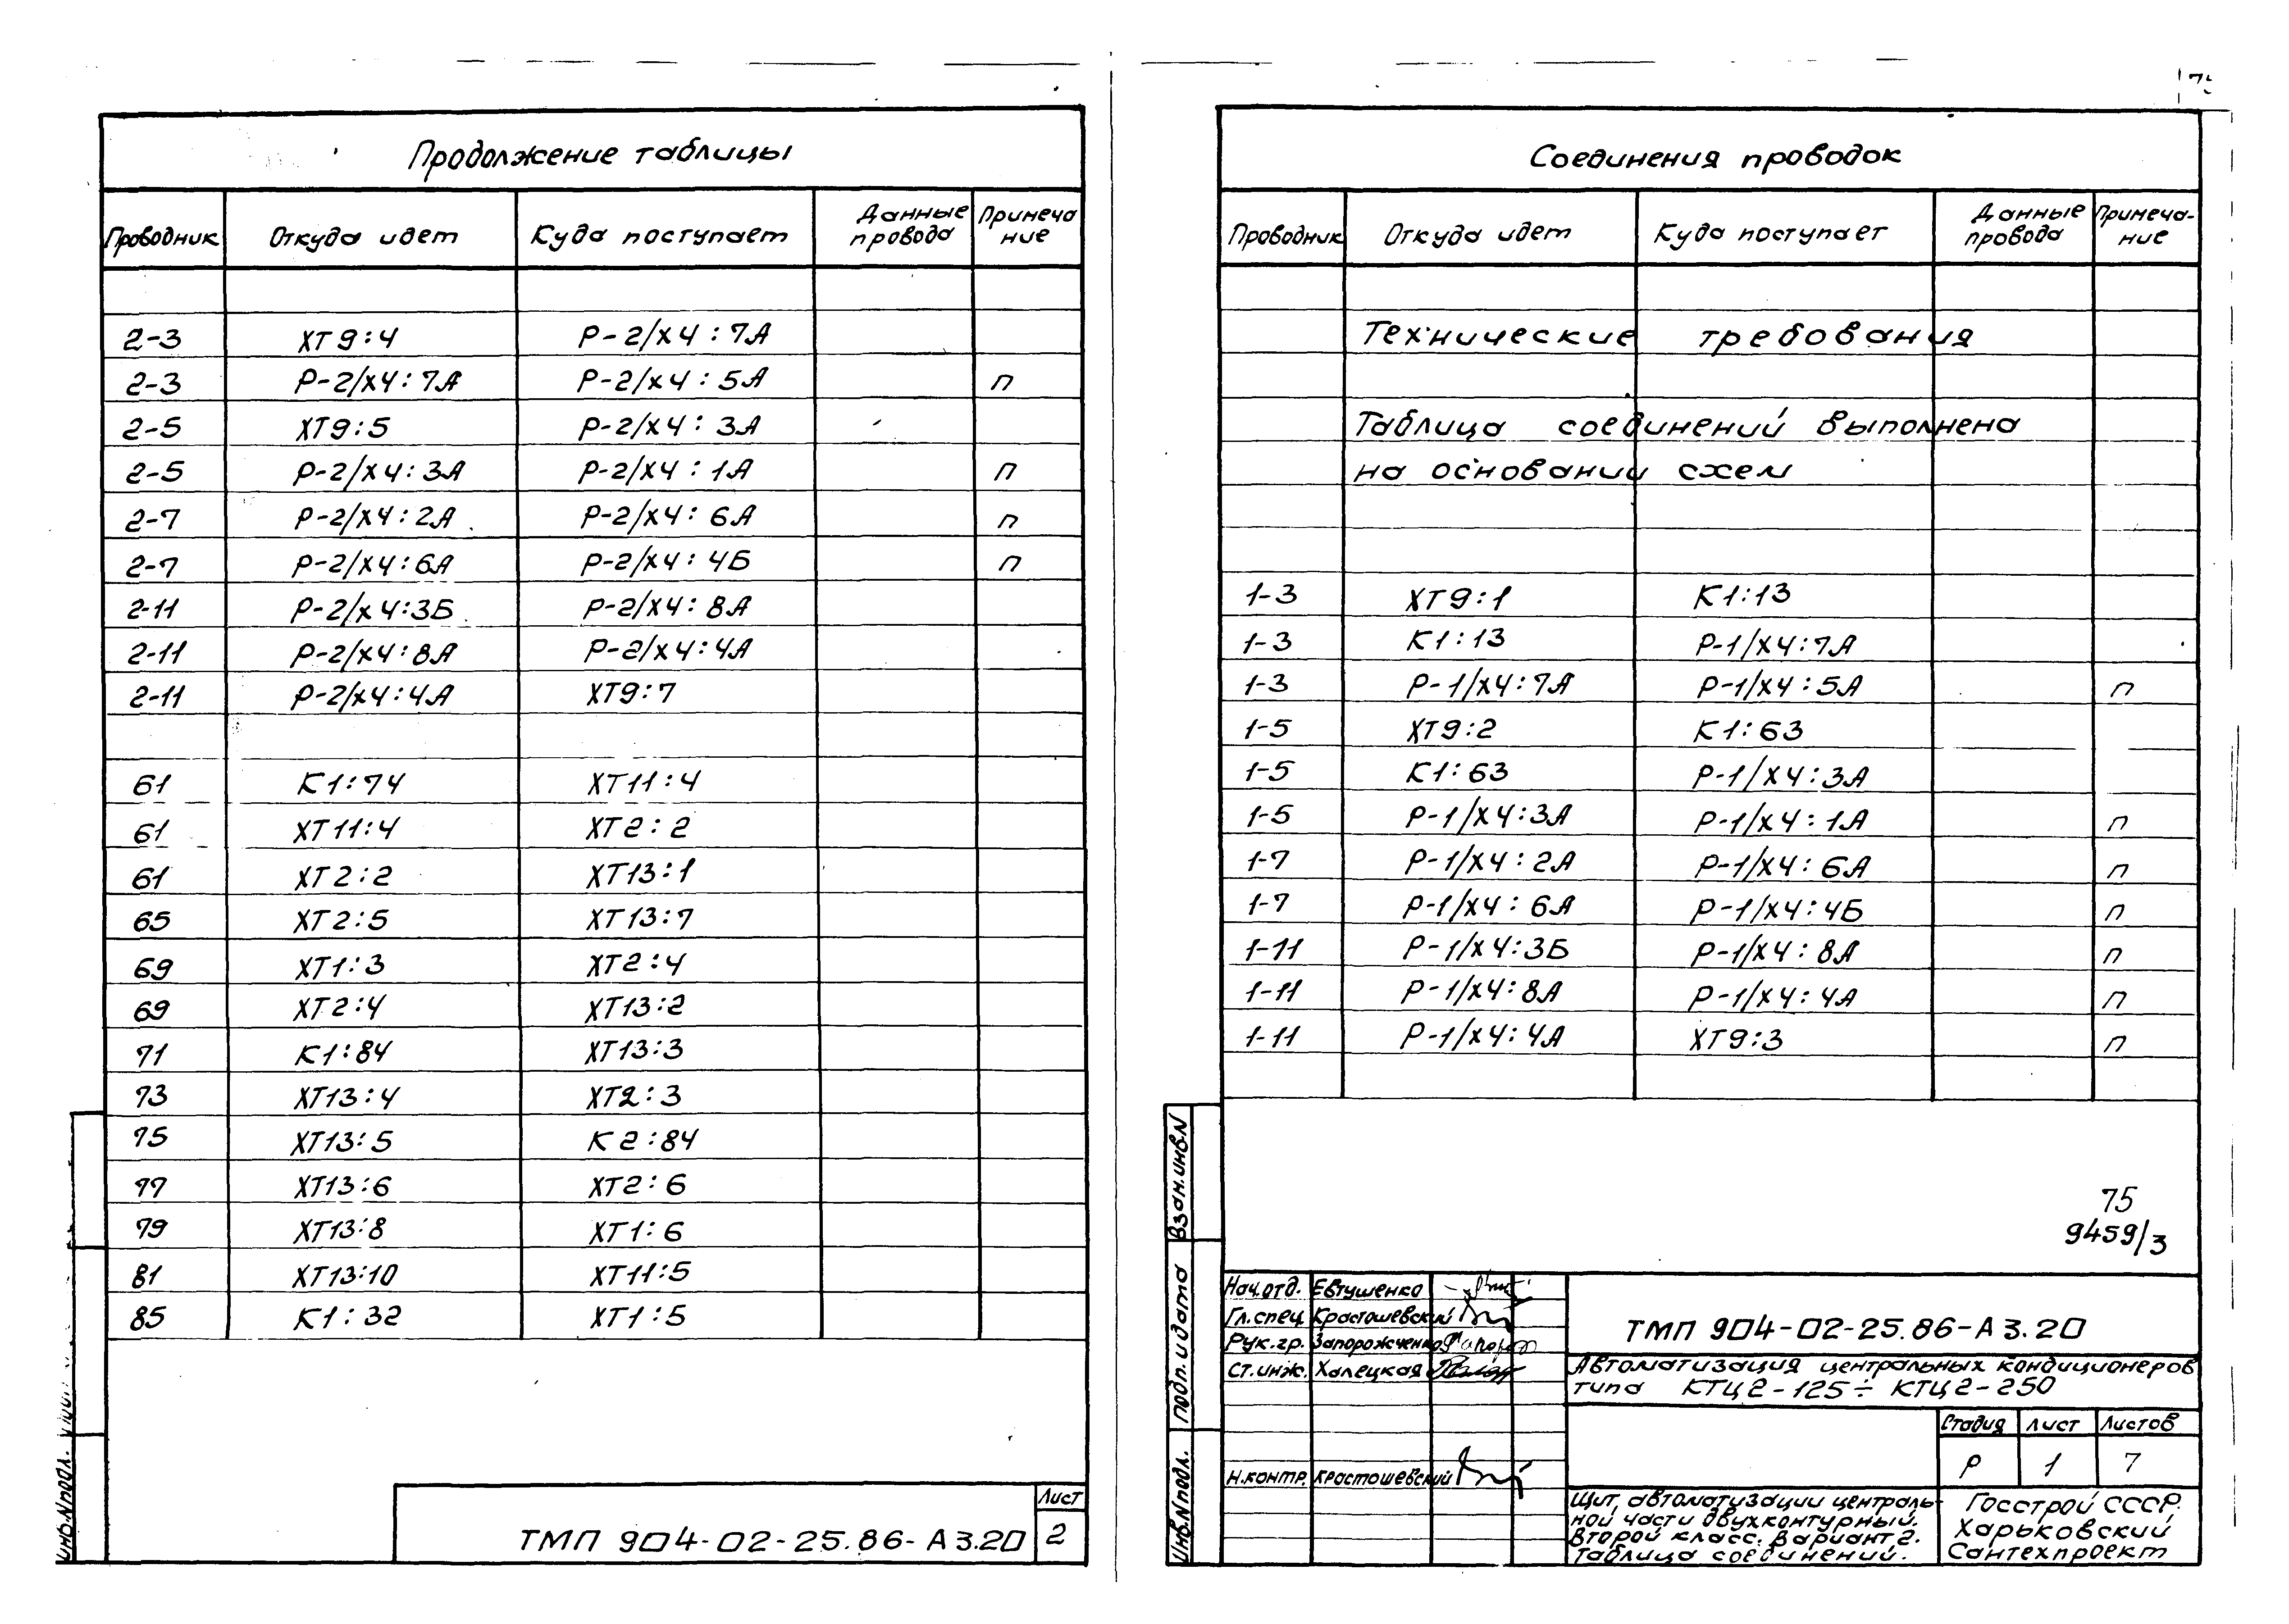 Продолжение таблицы
Проводник Откуда идет Куда поступает Данные провода Примеча ние
2-3 ХТ9:4 Р-2/Х4:7А
2-3 Р-2/Х4:7А Р-2/Х4:5А п
2-5 ХТ9:5 Р-2/Х4:3А
2-5 Р-2/Х4:3А Р-2/Х4:1А п
2-7 Р-2/Х4:2А Р-2/Х4:6А п
2-7 Р-2/Х4:6А Р-2/Х4:4Б п
2-11 Р-2/Х4:3Б Р-2/Х4:8А
2-11 Р-2/Х4:8А Р-2/Х4:4А
2-11 Р-2/Х4:4А ХТ9:7
61 К1:74 ХТ11:4
61 ХТ11:4 ХТ2:2
61 ХТ2:2 ХТ13:1
65 ХТ2:5 ХТ13:7
69 ХТ1:3 ХТ2:4
69 ХТ2:4 ХТ13:2
71 К1:84 ХТ13:3
73 ХТ13:4 ХТ2:3
75 ХТ13:5 К2:84
77 ХТ13:6 ХТ2:6
79 ХТ13:8 ХТ1:6
81 ХТ13:10 ХТ11:5
85 К1:32 ХТ1:5
Инв.N подл.
ТМП 904-02-25.86-А3.20
Лист
2
Соединения проводок
Проводник Откуда идет Куда поступает Данные провода Примеча-ние
Технические требования
Таблица соединений выполнена
на основании схем
1-3 ХТ9:1 К1:13
1-3 К1:13 Р-1/Х4:7А
1-3 Р-1/Х4:7А Р-1/Х4:5А п
1-5 ХТ9:2 К1:63
1-5 К1:63 Р-1/Х4:3А
1-5 Р-1/Х4:3А Р-1/Х4:1А п
1-7 Р-1/Х4:2А Р-1/Х4:6А п
1-7 Р-1/Х4:6А Р-1/Х4:4Б п
1-11 Р-1/Х4:3Б Р-1/Х4:8А п
1-11 Р-1/Х4:8А Р-1/Х4:4А п
1-11 Р-1/Х4:4А ХТ9:3 п
75
9459/3
Взам.инв.N
Подп. и дата
Инв.N подл.
Нач.отд. Евтушенко
Гл.спец. Красташевский
Рук.гр. Запорожченко
Ст.инж. Халецкая
Н.контр. Красташевский
ТМП 904-02-25.86-А3.20
Автоматизация центральных кондиционеров
типа КТЦ2-125÷КТЦ2-250
Стадия Лист Листов
Р 1 7
Щит автоматизации централь-
ной части двухконтурный.
Второй класс. Вариант 2.
Таблица соединений.
Госстрой СССР
Харьковский
Сантехпроект